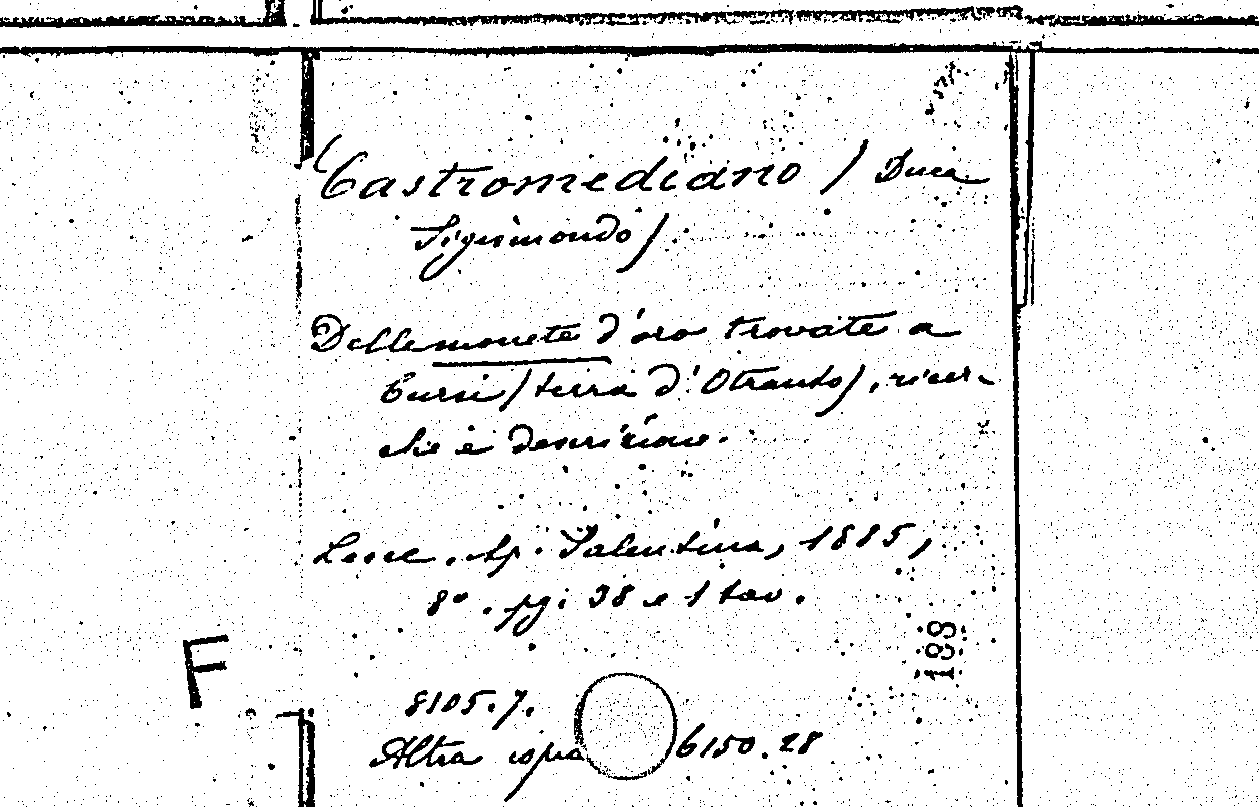 Castromediano / Duca
Sigismondo /.
Delle monete d'oro trovate a
Cursi / terra d'Otranto /, ricer-
che e descrizione.
Lecce. tip. Salentina, 1885,
8º. pgi 38 e 1 tav.
188
F
8105.7.
Altra copia 6150.28